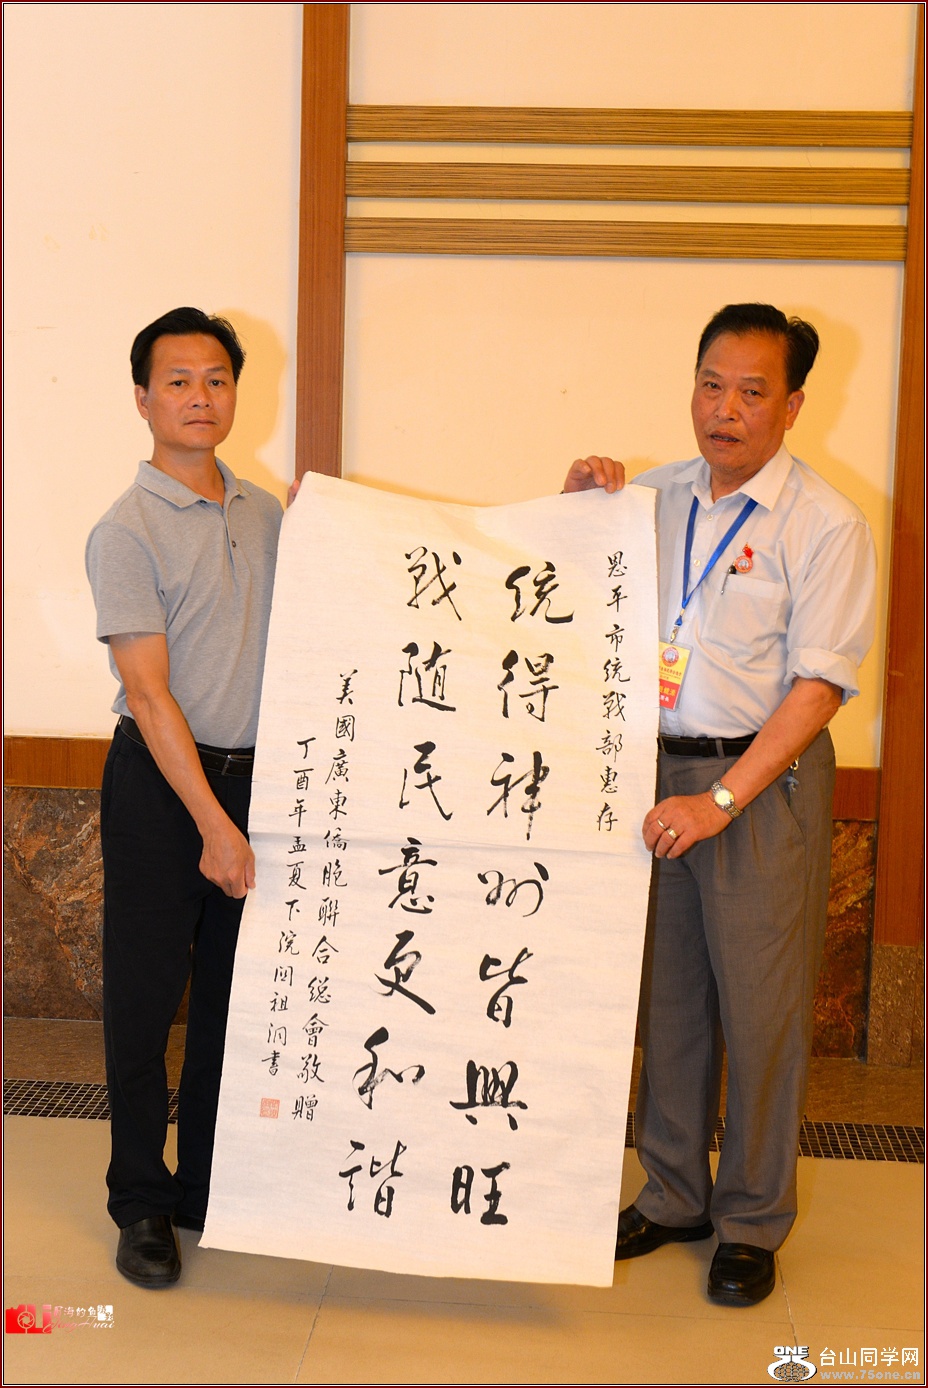 恩平市统战部惠存
统得神州皆興旺
战随民意更和谐
美國廣東僑胞聯合總會敬贈
丁酉年孟夏下浣関祖洞書
ONE
台山同学网
www.75one.cn